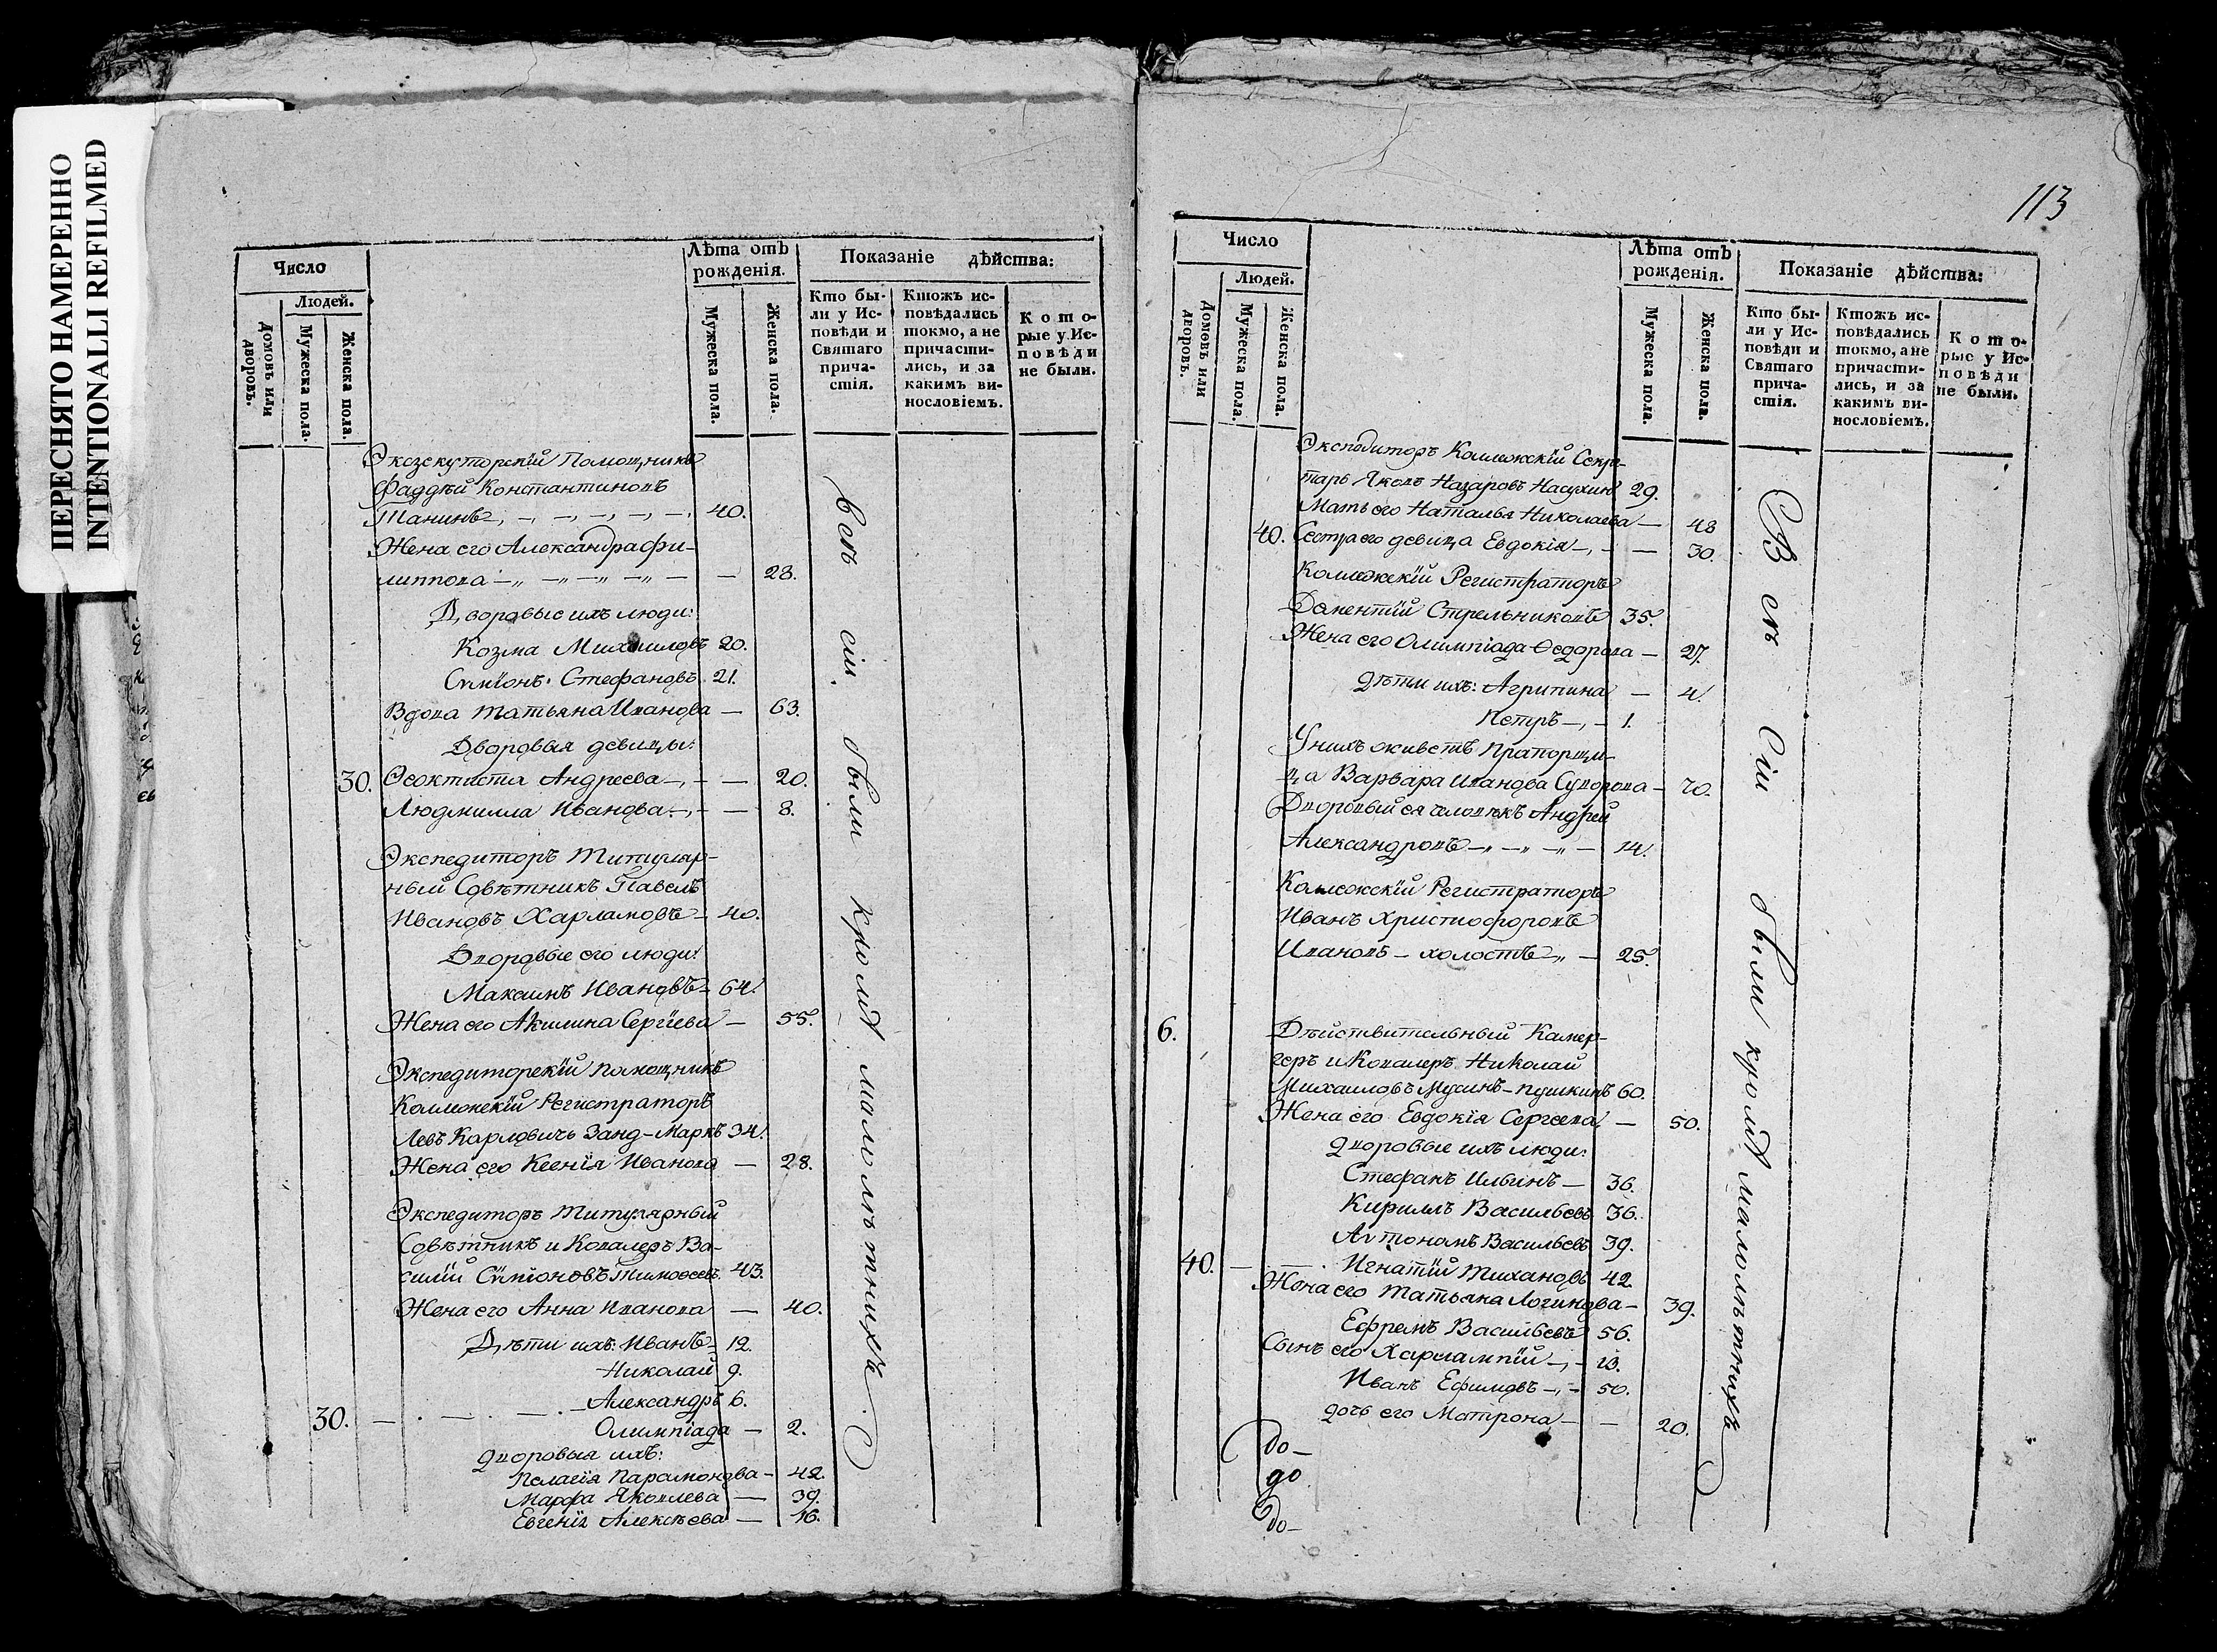 ПЕРЕСНЯТО НАМЕРЕННО
INTENTIONALLI REFILMED
Число
Людей.
Домовъ или дворовъ.
Мужеска пола.
Женска пола.
Лѣта отъ рожденія.
Мужеска пола.
Женска пола.
Показаніе дѣйства:
Кто бы-
ли у Ис-
повѣди и
Святаго
прича-
стія.
Ктожъ ис-
повѣдались
токмо, а не
причасти-
лись, и за
какимъ ви-
нословіемъ.
Кото-
рые у Ис-
повѣди
не были.
Экзекуторскій Помощникъ
Фаддѣй Константиновъ
Танинъ 40.
Жена его Александра Фи-
липпова 28.
Дворовые ихъ люди:
Козма Михаиловъ 20.
Сѵмїонъ Стефановъ 21.
Вдова Татьяна Иванова — 63.
Дворовыя девицы:
30. Ѳеоктиста Андреева — 20.
Людмилла Иванова — 8.
Экспедиторъ Титуляр-
ный Совѣтникъ Павелъ
Ивановъ Харламовъ — 40.
Дворовые его люди:
Максимъ Ивановъ — 64.
Жена его Акилина Сергіева — 55.
Экспедиторскій помощникъ
Коллежскій Регистраторъ
Левъ Карловичь Занд-Маркъ 34.
Жена его Ксенія Иванова — 28.
Экспедиторъ Титулярный
Совѣтникъ и Кавалеръ Ва-
силій Сѵмїоновъ Тимоѳеевъ 43.
Жена его Анна Иванова — 40.
Дѣти ихъ: Иванъ — 12.
Николай 9.
Александръ 6.
30. Олимпіада — 2.
Дворовыя ихъ:
Пелагія Парамонова — 42.
Марфа Яковлева — 39.
Евгенія Алексѣева — 16.
Всѣ сіи были кромѣ малолѣтнихъ.
113
Число
Людей.
Домовъ или дворовъ.
Мужеска пола.
Женска пола.
Лѣта отъ рожденія.
Мужеска пола.
Женска пола.
Показаніе дѣйства:
Кто бы-
ли у Ис-
повѣди и
Святаго
прича-
стія.
Ктожъ ис-
повѣдались
токмо, а не
причасти-
лись, и за
какимъ ви-
нословіемъ.
Кото-
рые у Ис-
повѣди
не были.
Экспедиторъ Коллежскій Секре-
тарь Яковъ Назаровъ 29.
Мать его Наталья Николаева — 48
40. Сестра его девица Евдокія — 30.
Коллежскій Регистраторъ
Доментій Стрельниковъ 35.
Жена его Олимпіада Ѳедорова — 27.
Дѣти ихъ: Агрипина — 4.
Петръ — 1.
У нихъ живетъ Прапорщи-
ца Варвара Иванова Суворова — 70.
Дворовый ея человѣкъ Андрей
Александровъ — 14.
Коллежскій Регистраторъ
Иванъ Христофоровъ
Ивановъ — холостъ — 25.
6. Дѣйствительный Камер-
геръ и Кавалеръ Николай
Михаиловъ Мусинъ-Пушкинъ 60.
Жена его Евдокія Сергеева — 50.
Дворовые ихъ люди:
Стефанъ Ильинъ — 36.
Кирилъ Васильевъ 36.
Автономъ Васильевъ 39.
40. — Игнатій Тихановъ 42.
Жена его Татьяна Логинова — 39.
Ефремъ Васильевъ 56.
Сынъ его Харлампій — 13.
Иванъ Ефимовъ — 50.
дочь его Матрона — 20.
до —
до
до —
Всѣ Сіи были кромѣ малолѣтнихъ